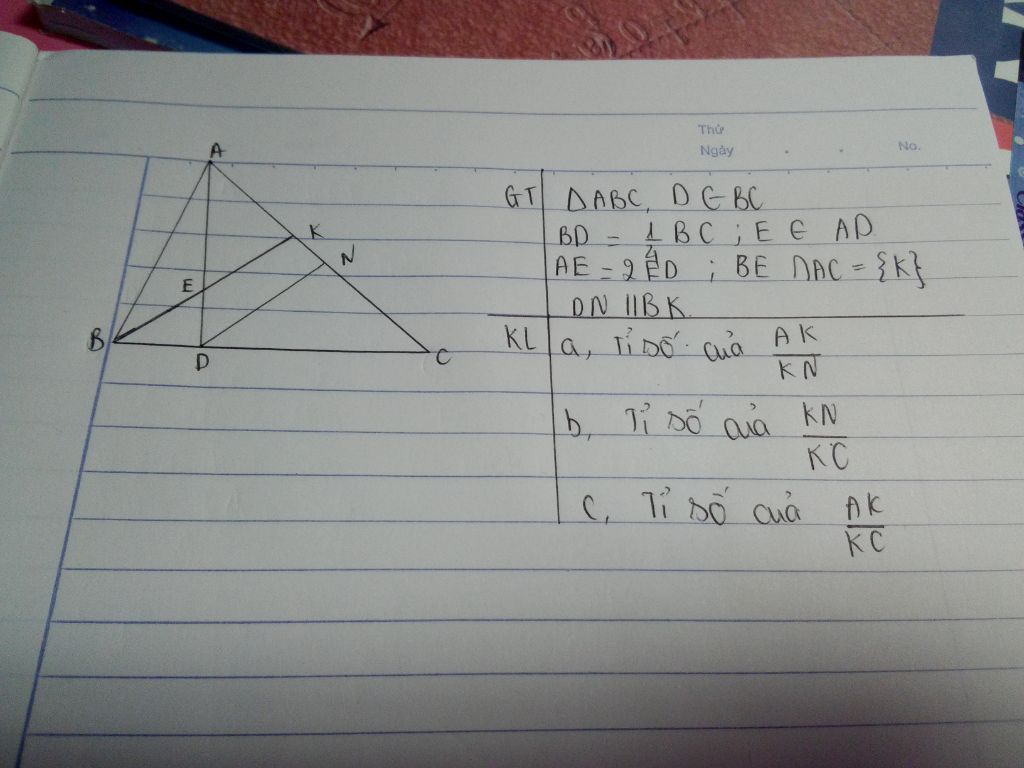 Thứ
Ngày . . No.
A
K
N
E
B
D
C
GT ΔABC, D ∈ BC
BD = 1/4 BC ; E ∈ AD
AE = 2 ED ; BE ∩ AC = {K}
DN // BK
KL a, Tỉ số của AK/KN
b, Tỉ số của KN/KC
c, Tỉ số của AK/KC